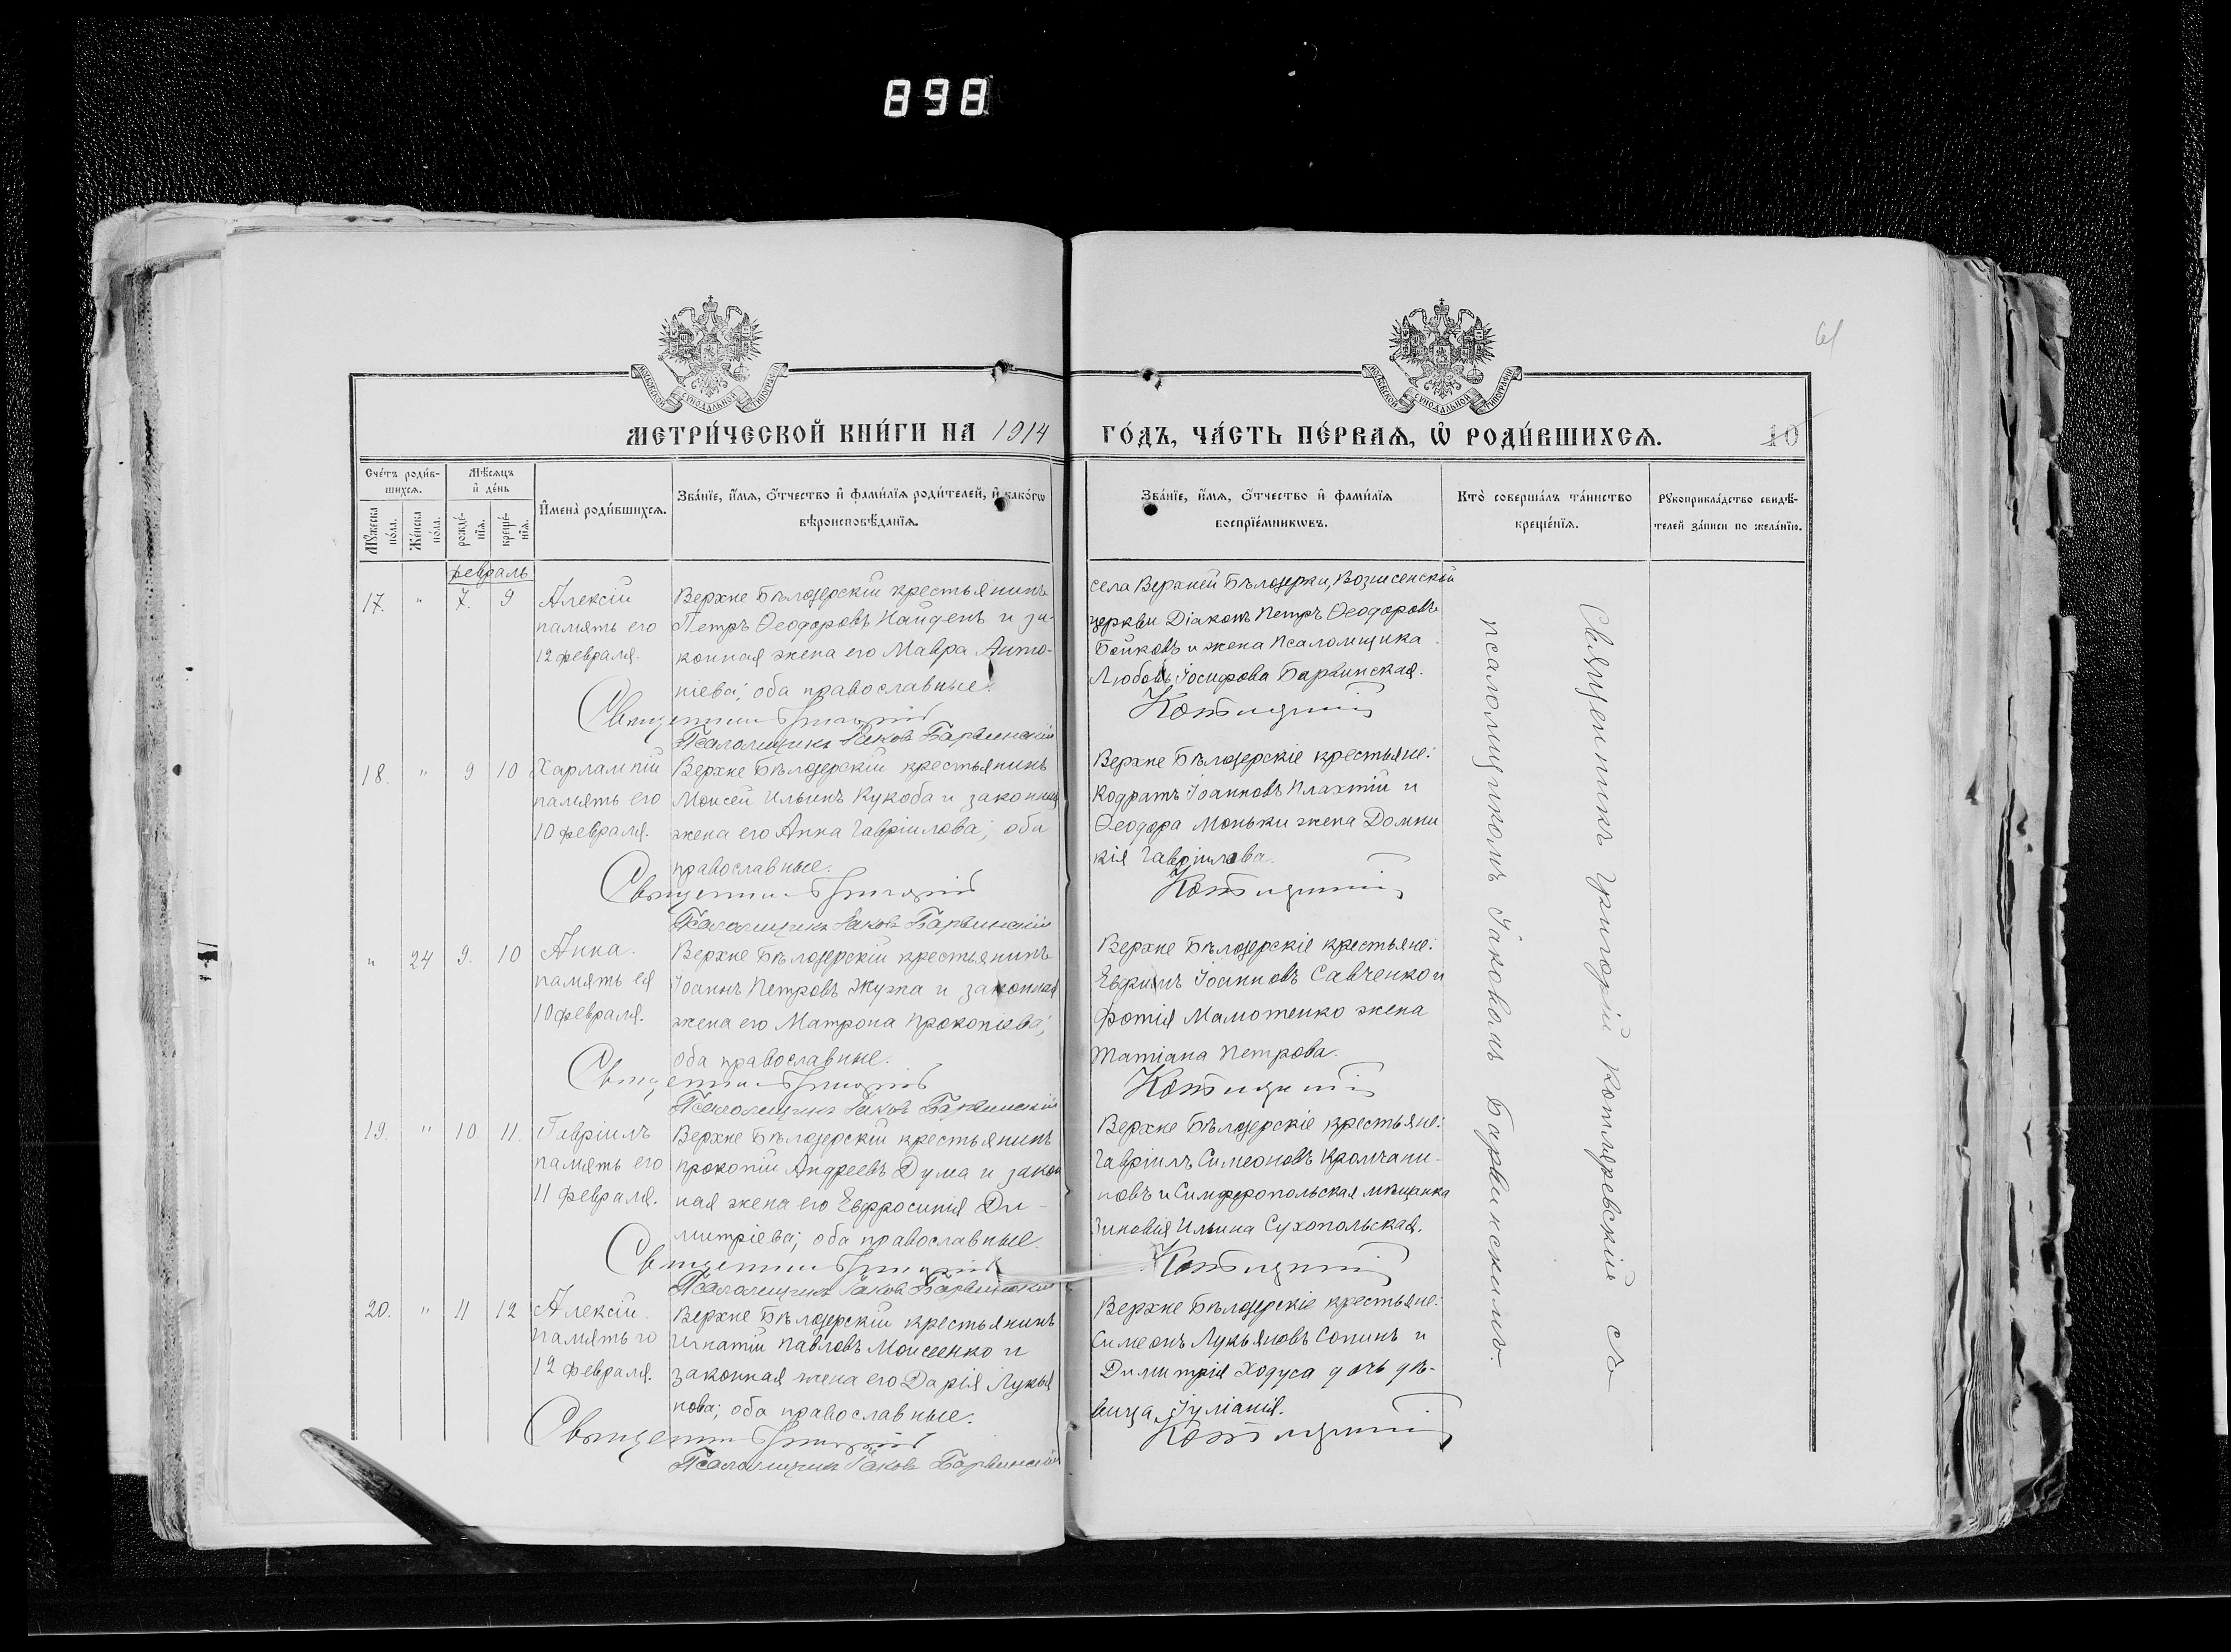 898
МОСКОВСКОЙ СѴНОДАЛЬНОЙ ТИПОГРАФІИ
МОСКОВСКОЙ СѴНОДАЛЬНОЙ ТИПОГРАФІИ
61
МЕТРИ́ЧЕСКОЙ КНИ́ГИ НА 1914 ГО́ДЪ, ЧА́СТЬ ПЕ́РВАѦ, Ѡ҆ РОДИ́ВШИХСѦ.
10
Сче́тъ роди́вшихсѧ.
Мꙋ́жеска по́ла.
Же́нска по́ла.
Мѣ́сѧцъ и҆ де́нь
рожде́нїѧ.
креще́нїѧ.
И҆мена̀ роди́вшихсѧ.
Зва́нїе, и҆́мѧ, ѻ҆́тчество и҆ фами́лїѧ роди́телей, и҆ како́гѡ вѣроисповѣ́данїѧ.
Зва́нїе, и҆́мѧ, ѻ҆́тчество и҆ фами́лїѧ воспрїе́мникѡвъ.
Кто̀ соверша́лъ та́инство креще́нїѧ.
Рꙋкоприкла́дство свидѣ́телей за́писи по жела́нїю.
февраль
17. " 7. 9
Алексій
память его
12 февраля.
Верхне Бѣлозерскій крестьянинъ
Петръ Ѳеодоровъ Найденъ и за-
конная жена его Мавра Анто-
ніева; оба православные.
Священникъ Григорій
Псаломщикъ Іаковъ Барвинскій
села Верхней Бѣлозерки, Вознесенской
церкви Діаконъ Петръ Ѳеодоровъ
Бойковъ и жена псаломщика
Любовь Іосифова Барвинская.
Котляревскій
18. " 9 10
Харлампій
память его
10 февраля.
Верхне Бѣлозерскій крестьянинъ
Моисей Ильинъ Кукоба и законная
жена его Анна Гавріилова; оба
православные.
Священникъ Григорій
Псаломщикъ Іаковъ Барвинскій
Верхне Бѣлозерскіе крестьяне:
Кодратъ Іоанновъ Плахтій и
Ѳеодора Моньки жена Домни
кія Гавріилова.
Котляревскій
" 24 9. 10
Анна.
память ея
10 февраля.
Верхне Бѣлозерскій крестьянинъ
Іоаннъ Петровъ Жужа и законная
жена его Матрона Прокопіева;
оба православные.
Священникъ Григорій
Псаломщикъ Іаковъ Барвинскій
Верхне Бѣлозерскіе крестьяне:
Евфимъ Іоанновъ Савченко и
Фотія Мамотенко жена
Татіана Петрова.
Котляревскій
19. " 10 11.
Гавріилъ
память его
11 февраля.
Верхне Бѣлозерскій крестьянинъ
Прокопій Андреевъ Дума и закон
ная жена его Евфросинія Ди-
митріева; оба православные.
Священникъ Григорій
Псаломщикъ Іаковъ Барвинскій
Верхне Бѣлозерскіе крестьяне:
Гавріилъ Симеоновъ Кромчани-
новъ и Симферопольская мѣщанка
Зиновія Ильина Сухопольская.
Котляревскій
20. " 11 12
Алексій.
память го
12 февраля.
Верхне Бѣлозерскій крестьянинъ
Игнатій Павловъ Моисеенко и
законная жена его Дарія Лукья
нова; оба православные.
Священникъ Григорій
Псаломщикъ Іаковъ Барвинскій
Верхне Бѣлозерскіе крестьяне:
Симеонъ Лукьяновъ Сопинъ и
Димитрія Ходуса дочь дѣ-
вица, Іуліанія.
Котляревскій
Священникъ Григорій Котляревскій съ
псаломщикомъ Іаковомъ Барвинскимъ.